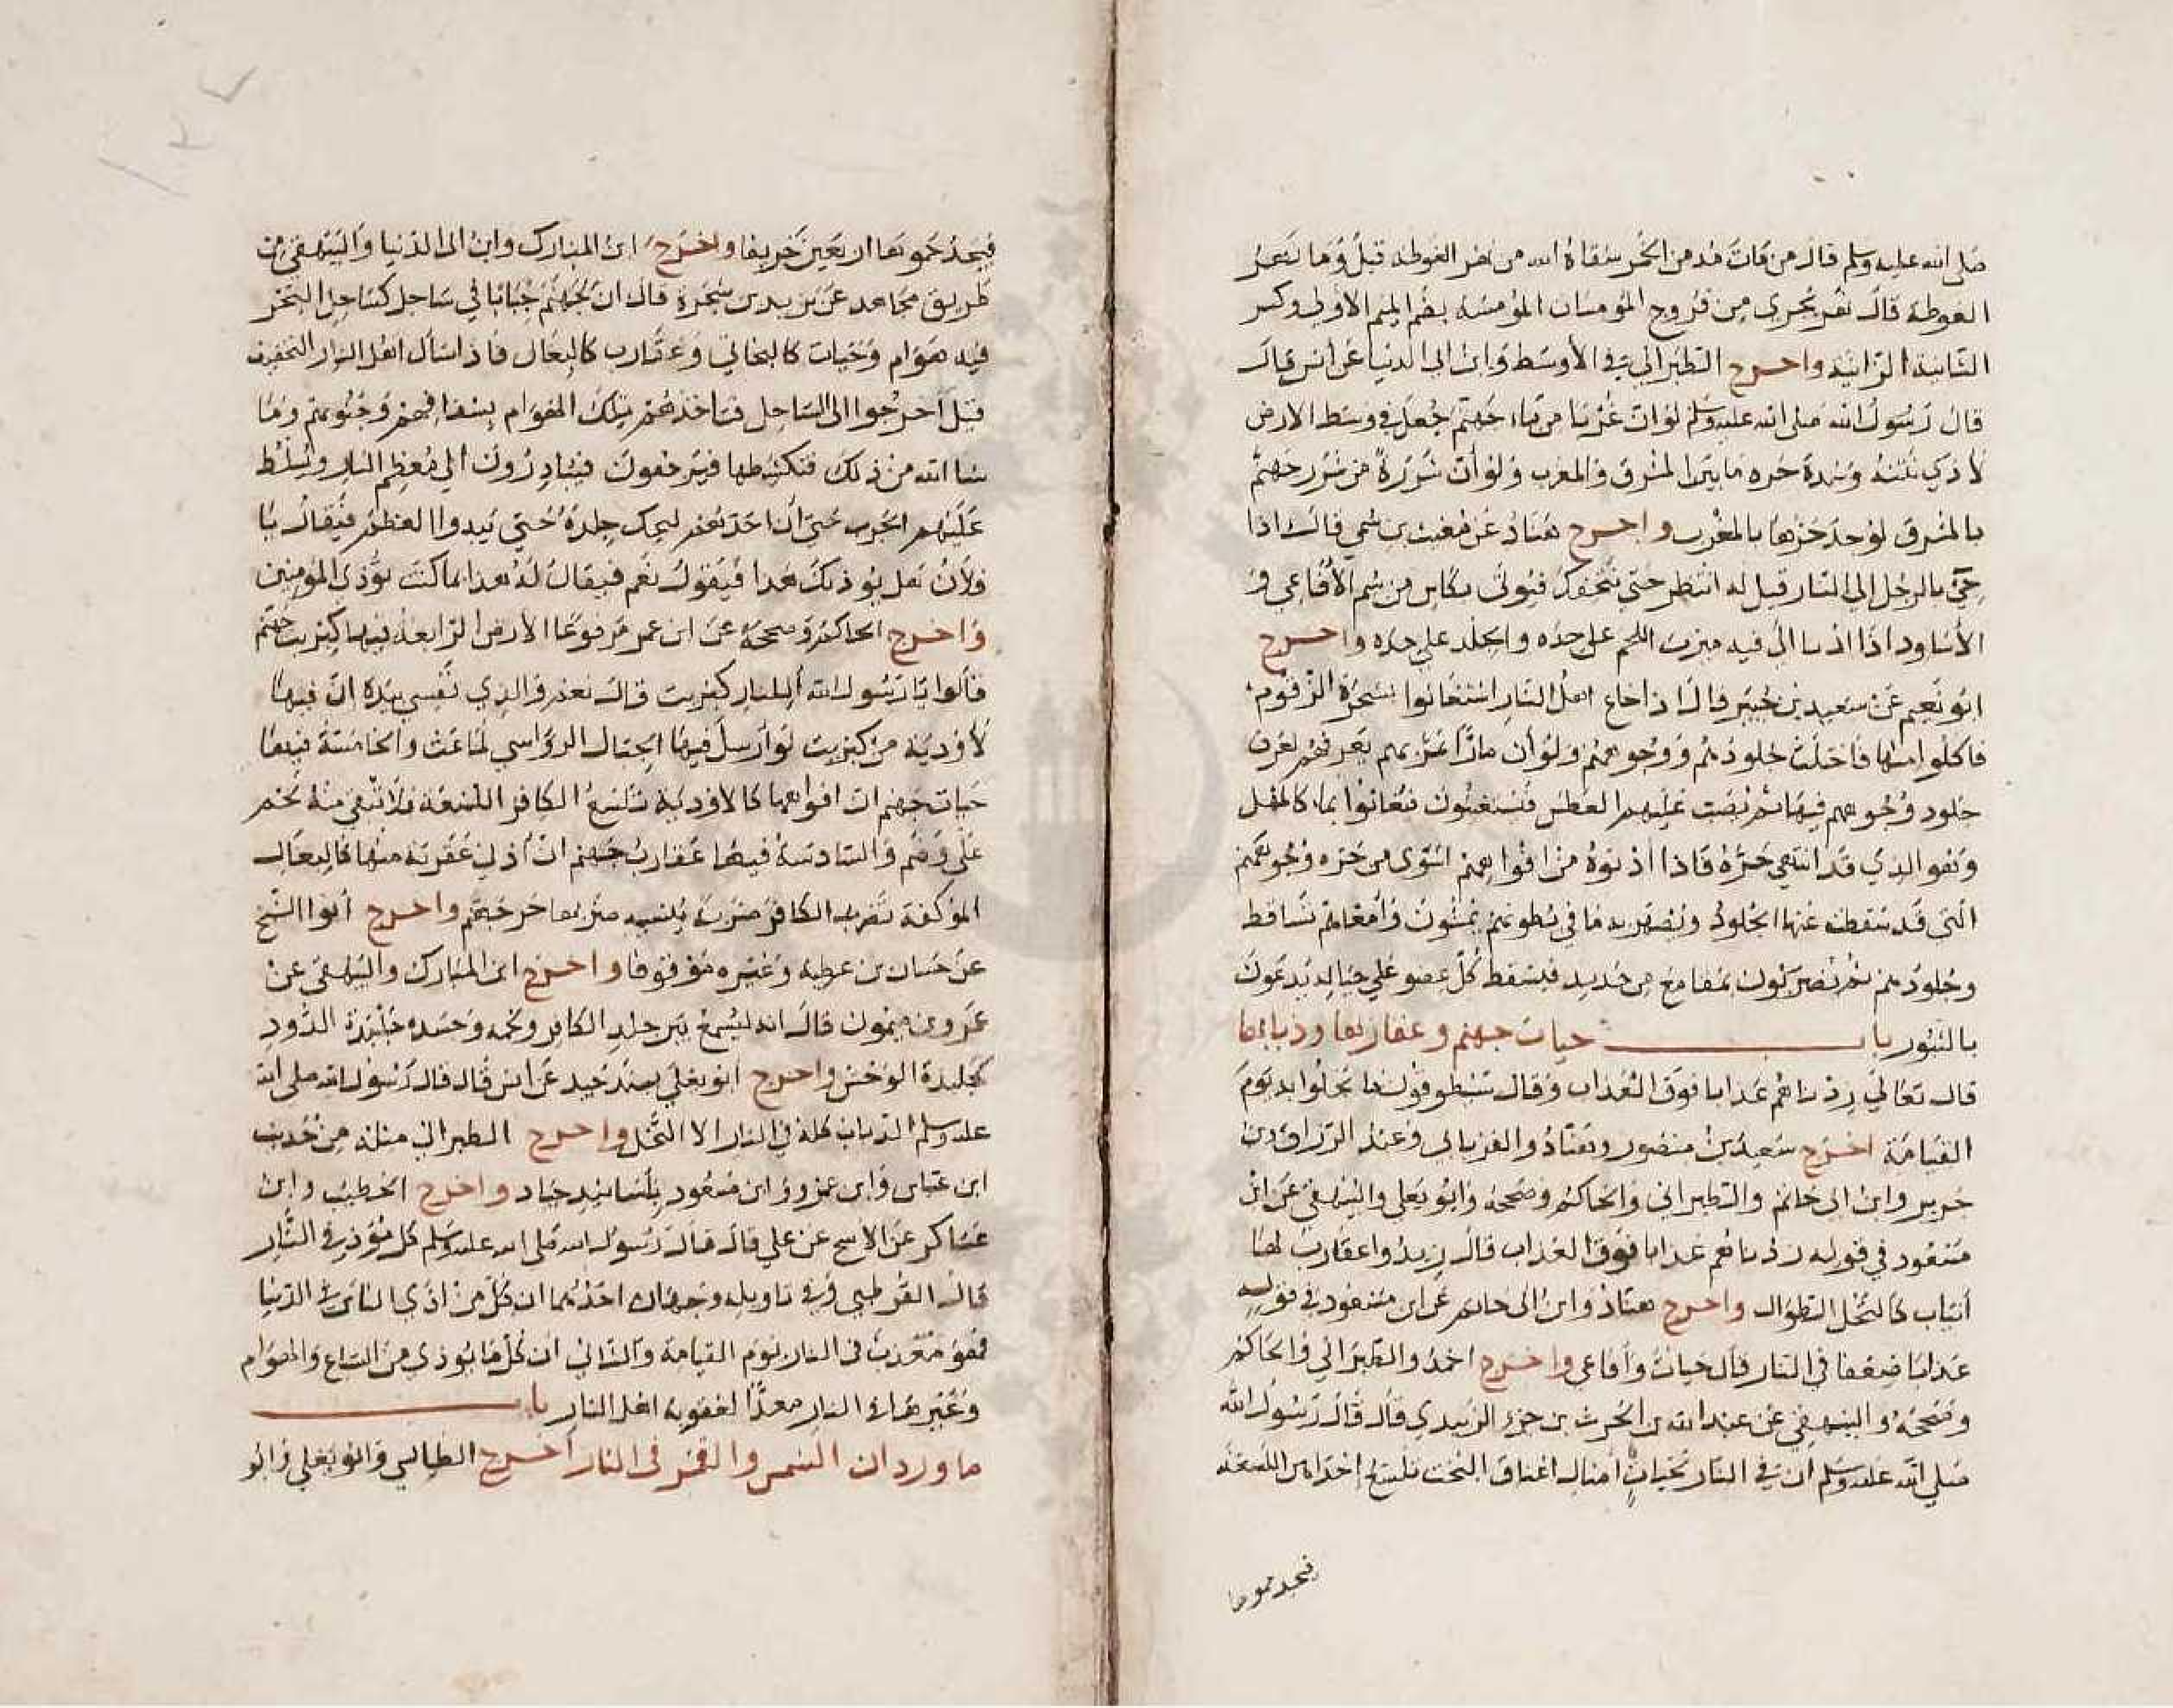 صلى الله عليه وسلم قال من مات مدمن الخمر سقاه الله من نهر الغوطة قيل وما نهر
الغوطة قال نهر يجري من فروج المومسات المومسة بضم الميم الاولى وكسر
الثانية الزانية واخرج الطبراني في الأوسط وابن ابي الدنيا عن انس قال
قال رسول الله صلى الله عليه وسلم لو ان غربا من ماء جهنم جعل في وسط الارض
لاذى نتنه وشدة حره ما بين المشرق والمغرب ولو أن شررة من شرر جهنم
بالمشرق لوجد حرها بالمغرب واخرج هناد عن مغيث بن سمي قال اذا
جئ بالرجل إلى النار قيل له انتظر حتى نتحفك فيوتى بكاس من سم الأفاعي و
الأساود اذا ادناها الى فيه ميزت اللحم على حده والجلد على حده واخرج
ابو نعيم عن سعيد بن جبير قال اذا جاع اهل النار استغاثوا بشجرة الزقوم
فاكلوا منها فاختلت جلودهم ووجوههم ولو أن مارا يمر بهم يعرفهم لعرف
جلود وجوههم فيها ثم يصب عليهم العطش فيستغيثون فيغاثوا بماء كالمهل
وهو الذي قد انتهى حره فاذا أدنوه من افواههم اشوى من حره وجوههم
التى قد سقطت عنها الجلود ويصهر به ما في بطونهم يمشون وأمعاهم تساقط
وجلودهم ثم يضربون بمقامع من حديد فيسقط كل عضو على حياله يدعون
بالثبور باب حيات جهنم وعقاربها وذبابها
قال تعالى زدناهم عذابا فوق العذاب وقال سيطوقون ما بخلوا به يوم
القيامة اخرج سعيد بن منصور وهناد والفريابي وعبد الرزاق وبن
جرير وابن ابى حاتم والطبراني والحاكم وصححه وابو يعلى والبيهقي عن ابن
مسعود في قوله زدناهم عذابا فوق العذاب قال زيدوا عقارب لها
أنياب كالنخل الطوال واخرج هناد وابن ابى حاتم عن ابن مسعود في قوله
عذابا ضعفا في النار قال حيات وأفاعي واخرج احمد والطبراني والحاكم
وصححه والبيهقي عن عبد الله بن الحرث بن جزء الزبيدي قال قال رسول الله
صلى الله عليه وسلم ان في النار لحيات أمثال اعناق البخت تلسع إحداهن اللسعة
فيجد حموها
فيجد حموتها اربعين خريفا واخرج ابن المبارك وابن ابى الدنيا والبيهقي من
طريق مجاهد عن يزيد بن شجرة قال ان لجهنم جبابا في ساحل كساحل البحر
فيه هوام وحيات كالبخاتي وعقارب كالبغال فاذا سأل اهل النار التخفيف
قيل أخرجوا إلى الساحل فتاخذهم تلك الهوام بشفاههم وجنوبهم وما
شا الله من ذلك فتكشطها فيرجعون فيبادرون الى معظم النار ويسلط
عليهم الجرب حتى أن احدهم ليحك جلده حتى يبدوا العظم فيقال يا
فلان هل يوذيك هذا فيقول نعم فيقال له هذا بما كنت تؤذي المومنين
واخرج الحاكم وصححه عن ابن عمر مرفوعا الارض الرابعة فيها كبريت جهنم
قالوا يا رسول الله أللنار كبريت قال نعم والذي نفسي بيده ان فيها
لأودية من كبريت لو أرسل فيها الجبال الرواسي لماعت والخامسة فيها
حيات جهنم ان افواهها كالاودية تلسع الكافر اللسعة فلا تبقى منه لحم
على وضم والسادسة فيها عقارب جهنم ان أدنى عقربة منها كالبغال
المؤكفة تضرب الكافر ضربة ينسيه ضربها حر جهنم واخرج أبوا الشيخ
عن حسان بن عطية وغيره موقوفا واخرج ابن المبارك والبيهقي عن
عمرو بن ميمون قال انه ليسمع بين جلد الكافر ولحمه وجسده جلبة الدود
كجلبة الوحش واخرج ابو يعلى بسند جيد عن انس قال قال رسول الله صلى الله
عليه وسلم الذباب كله في النار الا النحل واخرج الطبراني مثله من حديث
ابن عباس وابن عمر وابن مسعود بأسانيد جياد واخرج الخطيب وابن
عساكر عن الاشج عن علي قال قال رسول الله صلى الله عليه وسلم كل مؤذ في النار
قال القرطبي وفي تاويله وجهان احدهما ان كل من اذى الناس في الدنيا
فهو معذب فى النار يوم القيامة والثاني ان كل ما يوذي من السباع والهوام
وغيرها في النار معدا لعقوبة اهل النار باب
ما ورد ان الشمس والقمر فى النار أخرج الطيالسي وابو يعلى وابو